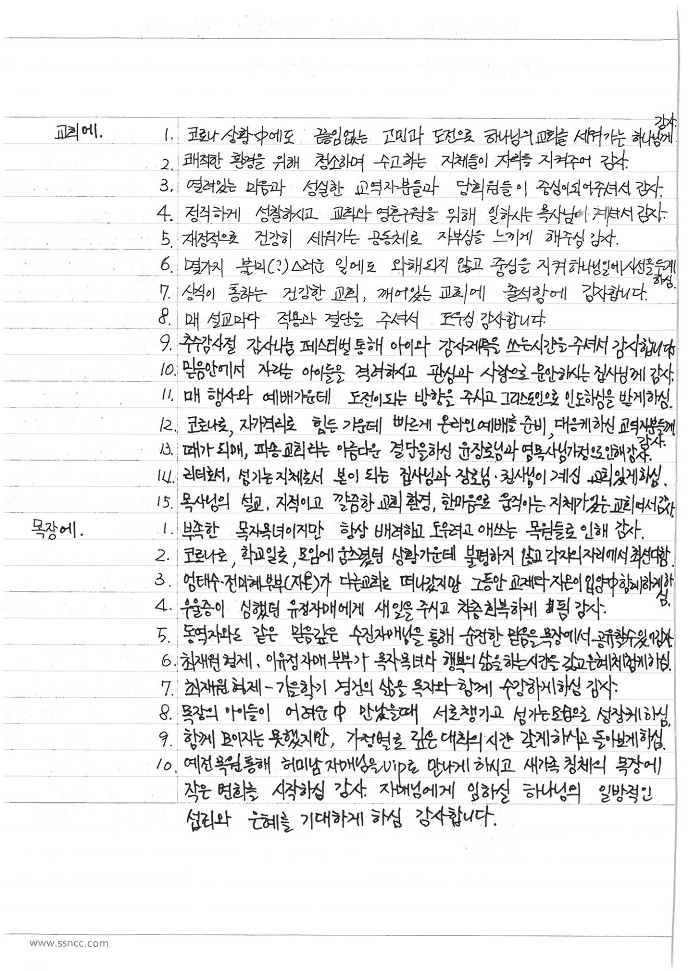 교회에. 1. 코로나 상황中에도 끊임없는 고민과 도전으로 하나님의 교회를 세워가는 하나님께 감사.
2. 쾌적한 환경을 위해 청소하며 수고하는 지체들이 자리를 지켜주어 감사.
3. 열려있는 마음과 성실한 교역자분들과 당회원들이 중심이되어주셔서 감사.
4. 정직하게 성찰하시고 교회와 영혼구원을 위해 일하시는 목사님이 계셔서 감사.
5. 재정적으로 건강히 세워가는 공동체로 자부심을 느끼게 해주심 감사.
6. 몇가지 분미(?)스러운 일에도 와해되지 않고 중심을 지켜 하나님일에 시선을 두게 하심.
7. 상식이 통하는 건강한 교회, 깨어있는 교회에 출석함에 감사합니다.
8. 매 설교마다 적용과 결단을 주셔서 도우심 감사합니다.
9. 추수감사절 감사나눔 페스티벌통해 아이와 감사제목을 쓰는시간을 주셔서 감사합니다
10. 믿음안에서 자라는 아이들을 격려하시고 관심과 사랑으로 운안하시는 집사님께 감사.
11. 매 행사와 예배가운데 도전이되는 방향을 주시고 그리스도인으로 인도하심을 받게하심.
12. 코로나로, 자가격리로 힘든 가운데 빠르게 온라인예배를 준비, 대응케하신 교역자분들께 감사.
13. 때가 되매, 파송교회라는 아름다운 결단을하신 윤장로님과 염목사님가정으로인해감사.
14. 리더로서, 섬기는지체로서 본이 되는 집사님과 장로님·집사님이 계심 교회있게하심.
15. 목사님의 설교, 지적이고 깔끔한 교회 환경, 한마음으로 움직이는 지체가있는 교회여서감사
목장에. 1. 부족한 목자목녀이지만 항상 배려하고 도우려고 애쓰는 목원들로 인해 감사.
2. 코로나로, 학교일로, 모임에 움츠렸던 상황가운데 불평하지 않고 각자의자리에서 최선다함.
3. 엄태수·전미혜부부(자온)가 다른교회로 떠나갔지만 그동안 교제하다 자온이 입양中 함께하게하심.
4. 우울증이 심했던 유정자매에게 새일을 주시고 차츰 회복하게 됨 감사.
5. 동역자와도 같은 믿음깊은 수진자매님을 통해 순전한 믿음을 목장에서 공유할수있어감사.
6. 최재원형제, 이유정자매부부가 목자목녀와 행복의삶을하는시간을 갖고은혜체험케하심.
7. 최재원형제 - 가을학기 경건의 삶을 목자와 함께 수강하게하심 감사.
8. 목장의 아이들이 어려운中 만났을때 서로챙기고 섬기는모습으로 성장케하심.
9. 함께 모이지는 못했지만, 가정별로 깊은 대화의시간 갖게하시고 돌아보게하심.
10. 예전목원통해 허미남자매님을 vip로 만나게 하시고 새가족 침체의 목장에
작은 변화를 시작하심 감사. 자매님에게 임하실 하나님의 일방적인
섭리와 은혜를 기대하게 하심 감사합니다.
www.ssncc.com